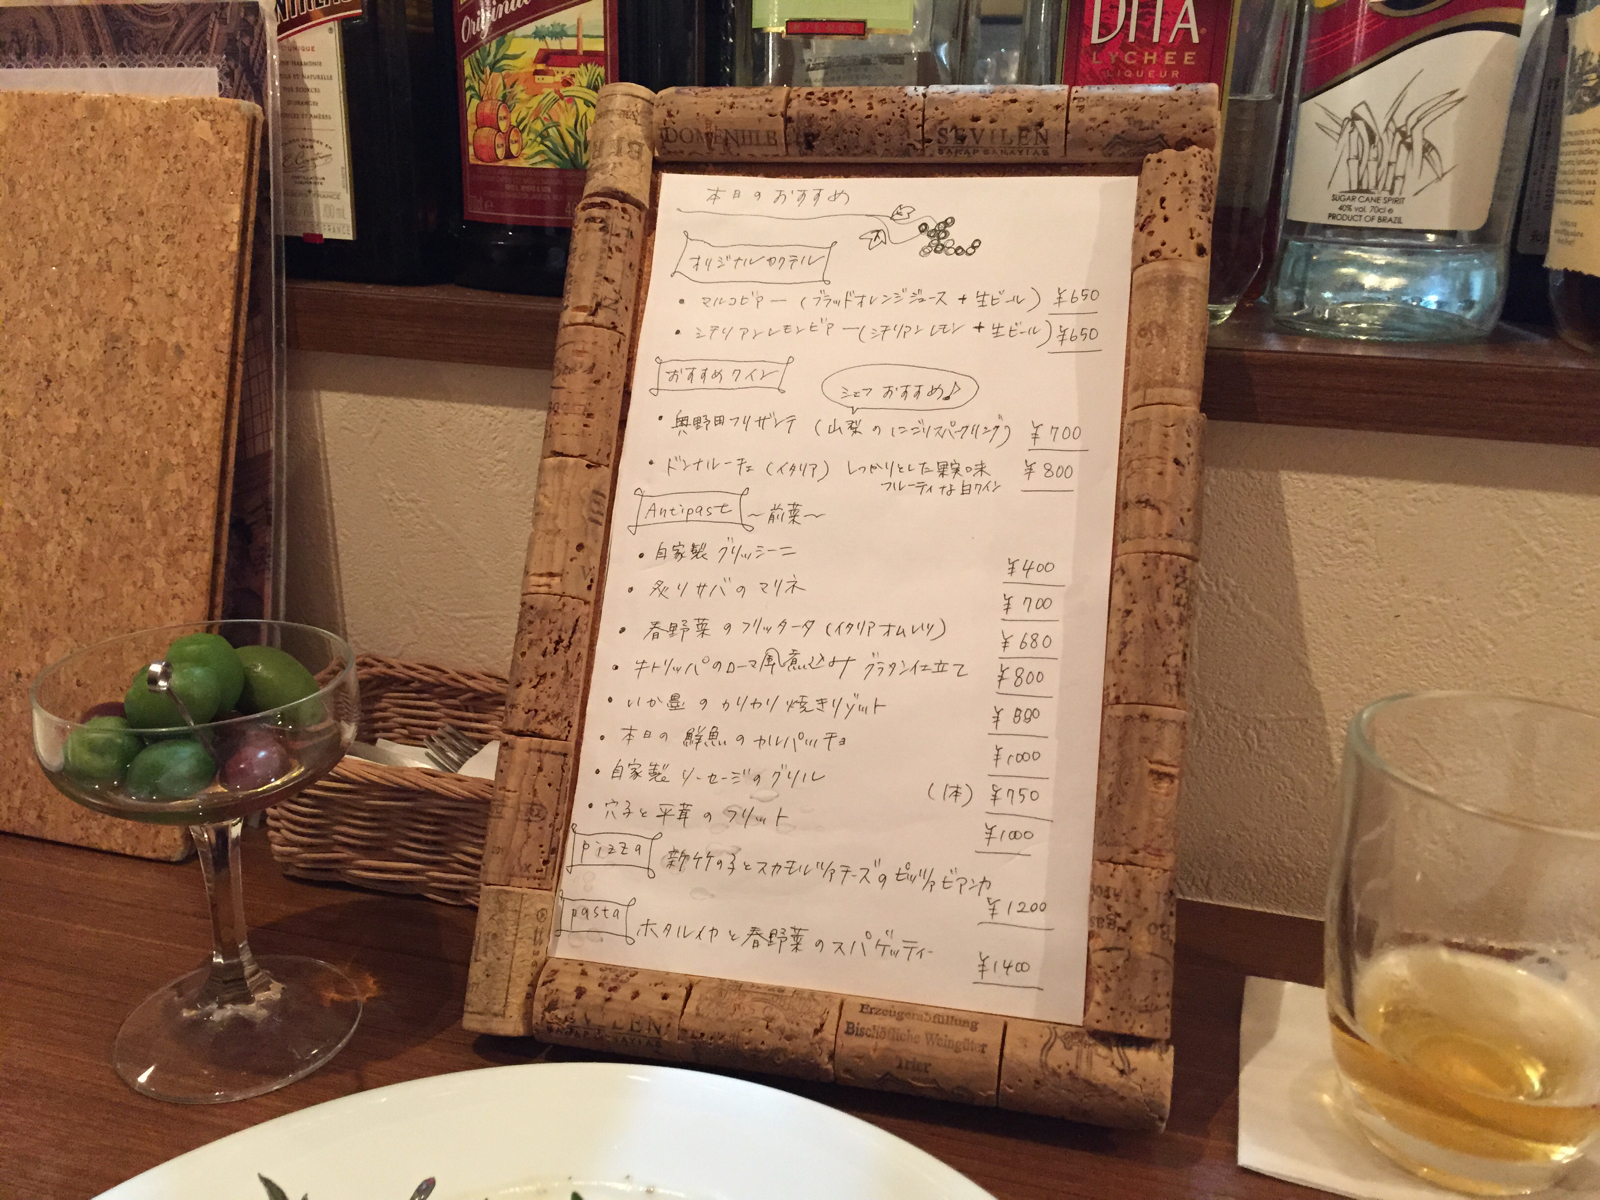 Original
DITA
LYCHEE
LIQUEUR
SUGAR CANE SPIRIT
40% vol. 70cl e
PRODUCT OF BRAZIL
DOMENHLB
SEVILEN
本日のおすすめ
オリジナルカクテル
・マルコビアー (ブラッドオレンジジュース + 生ビール) ¥650
・シチリアンレモンビアー (シチリアンレモン + 生ビール) ¥650
おすすめワイン
シェフおすすめ♪
・奥野田フリザンテ (山梨のにごりスパークリング) ¥700
・ドンナルーチェ (イタリア) しっかりとした果実味 ¥800
フルーティな白ワイン
Antipast ～前菜～
・自家製グリッシーニ ¥400
・炙りサバのマリネ ¥700
・春野菜のフリッタータ (イタリアオムレツ) ¥680
・牛トリッパのローマ風煮込み グラタン仕立て ¥800
・いか墨のカリカリ焼きリゾット ¥880
・本日の鮮魚のカルパッチョ ¥1000
・自家製ソーセージのグリル (1本) ¥750
・穴子と平茸のフリット ¥1000
pizza 新竹の子とスカモルツァチーズのピッツァビアンカ
¥1200
pasta ホタルイカと春野菜のスパゲッティー
¥1400
SEVILEN
Erzeugerabfüllung
Bischöfliche Weingüter
Trier